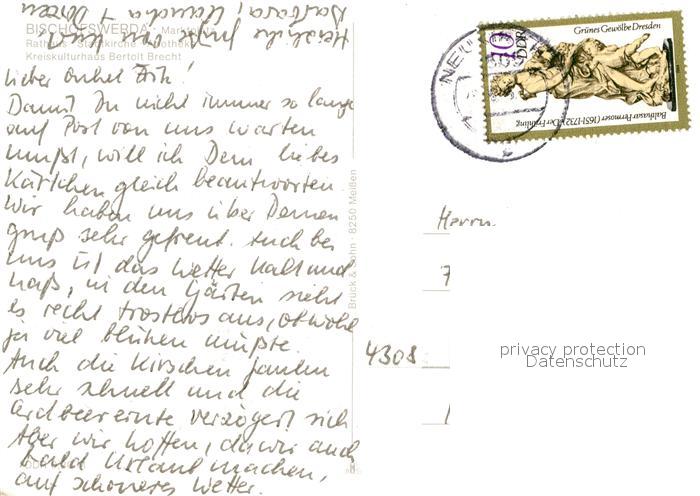 BISCHOFSWERDA · Markt
Rathaus · Stadtkirche · Apotheke
Kreiskulturhaus Bertolt Brecht
Lieber Onkel Fritz!
Damit Du nicht immer so lange
auf Post von uns warten
mußt, will ich Dein liebes
Kärtchen gleich beantworten.
Wir haben uns über Deinen
gruß sehr gefreut. Auch bei
uns ist das Wetter kalt und
naß, in den Gärten sieht
es recht trostlos aus, obwohl
ja viel blühen müßte.
Auch die Kirschen faulen
sehr schnell und die
Erdbeerernte verzögert sich
Aber wir hoffen, da wir auch
bald Urlaub machen,
auf schöneres Wetter.
Herzliche
Barbara, + Doreen
Bruck & Sohn · 8250 Meißen
10
DDR
Grünes Gewölbe Dresden
Balthasar Permoser (1651-1732) · Der Frühling
Herrn
4308
privacy protection
Datenschutz